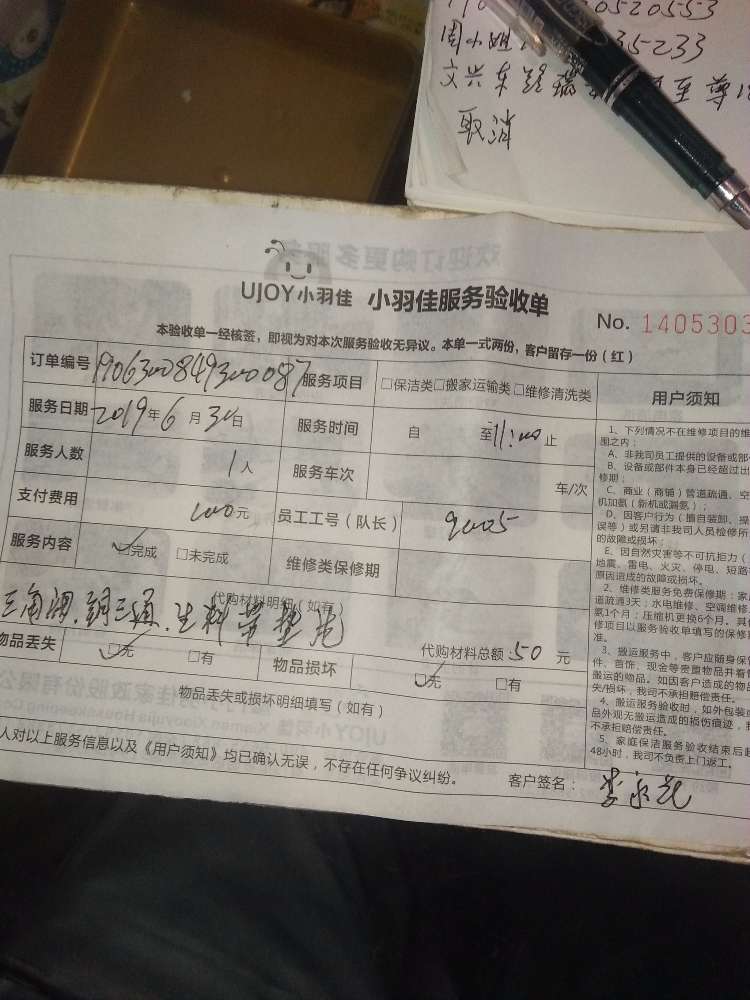 20520553
周小姐 35233
文兴东路 至尊
取消
欢迎订购更多服
UJOY小羽佳 小羽佳服务验收单
No. 1405303
本验收单一经核签，即视为对本次服务验收无异议。本单一式两份，客户留存一份（红）
订单编号 服务项目 □保洁类□搬家运输类□维修清洗类 用户须知
服务日期 2019年6月30日 服务时间 自 至11:00止
服务人数 1人 服务车次 车/次
支付费用 100元 员工工号（队长） 9005
服务内容 ☑完成 □未完成 维修类保修期
代购材料明细（如有）
三角阀、铜三通、生料带垫片
代购材料总额：50元
物品丢失 ☑无 □有 物品损坏 ☑无 □有
物品丢失或损坏明细填写（如有）
人对以上服务信息以及《用户须知》均已确认无误，不存在任何争议纠纷。 客户签名：
1、下列情况不在维修项目的维
围之内：
A、非我司员工提供的设备或部
B、设备或部件本身已经超过出
修期；
C、商业（商铺）管道疏通、空
机加氨（新机或漏氨）；
D、因客户行为（擅自装卸、操
误等）或另请非我司人员检修所
的故障或损坏；
E、因自然灾害等不可抗拒力（
地震、雷电、火灾、停电、短路
原因造成的故障或损坏。
2、维修类服务免费保修期：家
道疏通3天；水电维修、空调维修
氨1个月；压缩机更换6个月。其
修项目以服务验收单填写的保修
准。
3、搬运服务中，客户应随身保
件、首饰、现金等贵重物品并看
搬运的物品。如因客户造成的物品
失/损坏，我司不承担赔偿责任。
4、搬运服务验收时，如外包装
品外观无搬运造成的损伤痕迹，我
不承担赔偿责任。
5、家庭保洁服务验收结束后超
48小时，我司不负责上门返工。